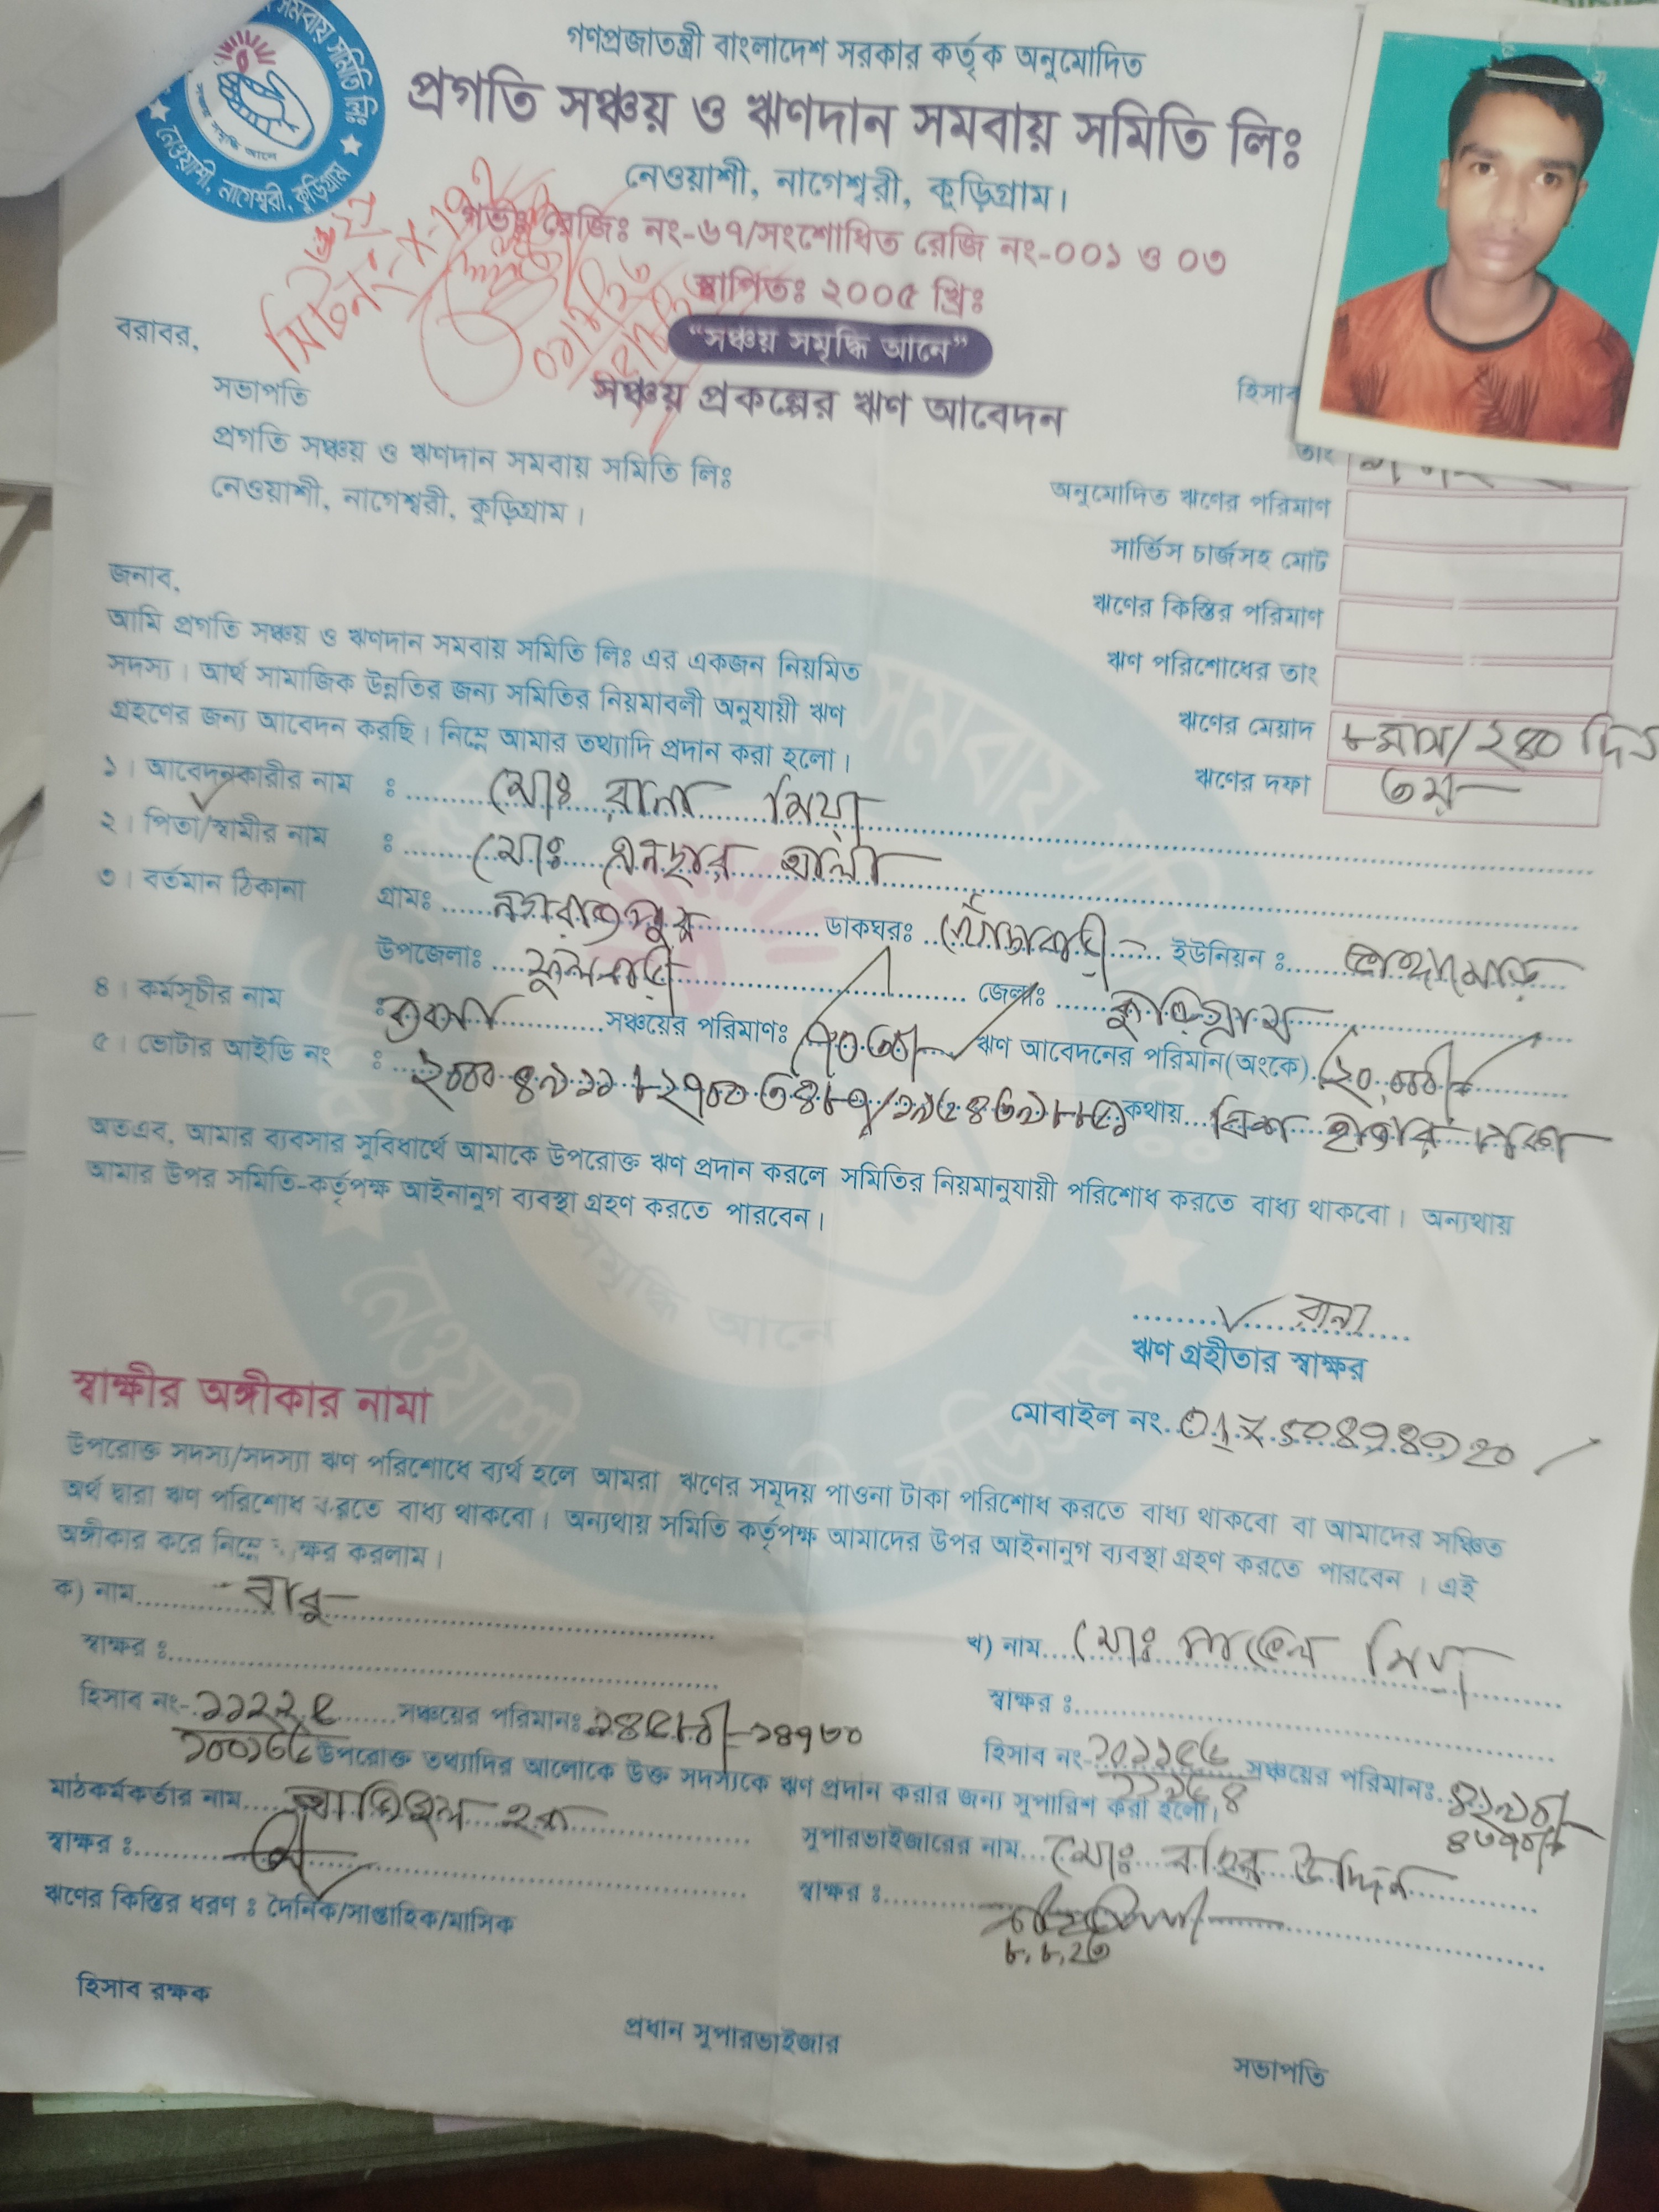 সমবায় সমিতি লিঃ
সঞ্চয় সমৃদ্ধি আনে
নেওয়াশী, নাগেশ্বরী, কুড়িগ্রাম
গণপ্রজাতন্ত্রী বাংলাদেশ সরকার কর্তৃক অনুমোদিত
প্রগতি সঞ্চয় ও ঋণদান সমবায় সমিতি লিঃ
নেওয়াশী, নাগেশ্বরী, কুড়িগ্রাম।
গভঃ রেজিঃ নং-৬৭/সংশোধিত রেজি নং-০০১ ও ০৩
স্থাপিতঃ ২০০৫ খ্রিঃ
“সঞ্চয় সমৃদ্ধি আনে”
সঞ্চয় প্রকল্পের ঋণ আবেদন
বরাবর,
সভাপতি
প্রগতি সঞ্চয় ও ঋণদান সমবায় সমিতি লিঃ
নেওয়াশী, নাগেশ্বরী, কুড়িগ্রাম।
হিসাব
তাং
অনুমোদিত ঋণের পরিমাণ
সার্ভিস চার্জসহ মোট
ঋণের কিস্তির পরিমাণ
ঋণ পরিশোধের তাং
ঋণের মেয়াদ ৮ মাস/২৪০ দিন
ঋণের দফা ৩য়
জনাব,
আমি প্রগতি সঞ্চয় ও ঋণদান সমবায় সমিতি লিঃ এর একজন নিয়মিত
সদস্য। আর্থ সামাজিক উন্নতির জন্য সমিতির নিয়মাবলী অনুযায়ী ঋণ
গ্রহণের জন্য আবেদন করছি। নিম্নে আমার তথ্যাদি প্রদান করা হলো।
১। আবেদনকারীর নাম : মোঃ রানা মিয়া
২। পিতা/স্বামীর নাম : মোঃ এনছার আলী
৩। বর্তমান ঠিকানা গ্রামঃ নগরাজপুর ডাকঘরঃ ইউনিয়ন :
উপজেলাঃ ফুলবাড়ী জেলাঃ কুড়িগ্রাম
৪। কর্মসূচীর নাম : ব্যবসা সঞ্চয়ের পরিমাণঃ ঋণ আবেদনের পরিমান(অংকে)
৫। ভোটার আইডি নং : কথায় হাজার টাকা
অতএব, আমার ব্যবসার সুবিধার্থে আমাকে উপরোক্ত ঋণ প্রদান করলে সমিতির নিয়মানুযায়ী পরিশোধ করতে বাধ্য থাকবো। অন্যথায়
আমার উপর সমিতি-কর্তৃপক্ষ আইনানুগ ব্যবস্থা গ্রহণ করতে পারবেন।
রানা
ঋণ গ্রহীতার স্বাক্ষর
মোবাইল নং
স্বাক্ষীর অঙ্গীকার নামা
উপরোক্ত সদস্য/সদস্যা ঋণ পরিশোধে ব্যর্থ হলে আমরা ঋণের সমূদয় পাওনা টাকা পরিশোধ করতে বাধ্য থাকবো বা আমাদের সঞ্চিত
অর্থ দ্বারা ঋণ পরিশোধ করতে বাধ্য থাকবো। অন্যথায় সমিতি কর্তৃপক্ষ আমাদের উপর আইনানুগ ব্যবস্থা গ্রহণ করতে পারবেন। এই
অঙ্গীকার করে নিম্নে ক্ষর করলাম।
ক) নাম বাবু
স্বাক্ষর :
হিসাব নং- ১১২২৫ সঞ্চয়ের পরিমানঃ
খ) নাম মোঃ মিয়া
স্বাক্ষর :
হিসাব নং- সঞ্চয়ের পরিমানঃ
উপরোক্ত তথ্যাদির আলোকে উক্ত সদস্যকে ঋণ প্রদান করার জন্য সুপারিশ করা হলো।
মাঠকর্মকর্তার নাম হক
স্বাক্ষর :
সুপারভাইজারের নাম মোঃ উদ্দিন
স্বাক্ষর :
৮.৮.২৩
ঋণের কিস্তির ধরণ : দৈনিক/সাপ্তাহিক/মাসিক
হিসাব রক্ষক
প্রধান সুপারভাইজার
সভাপতি